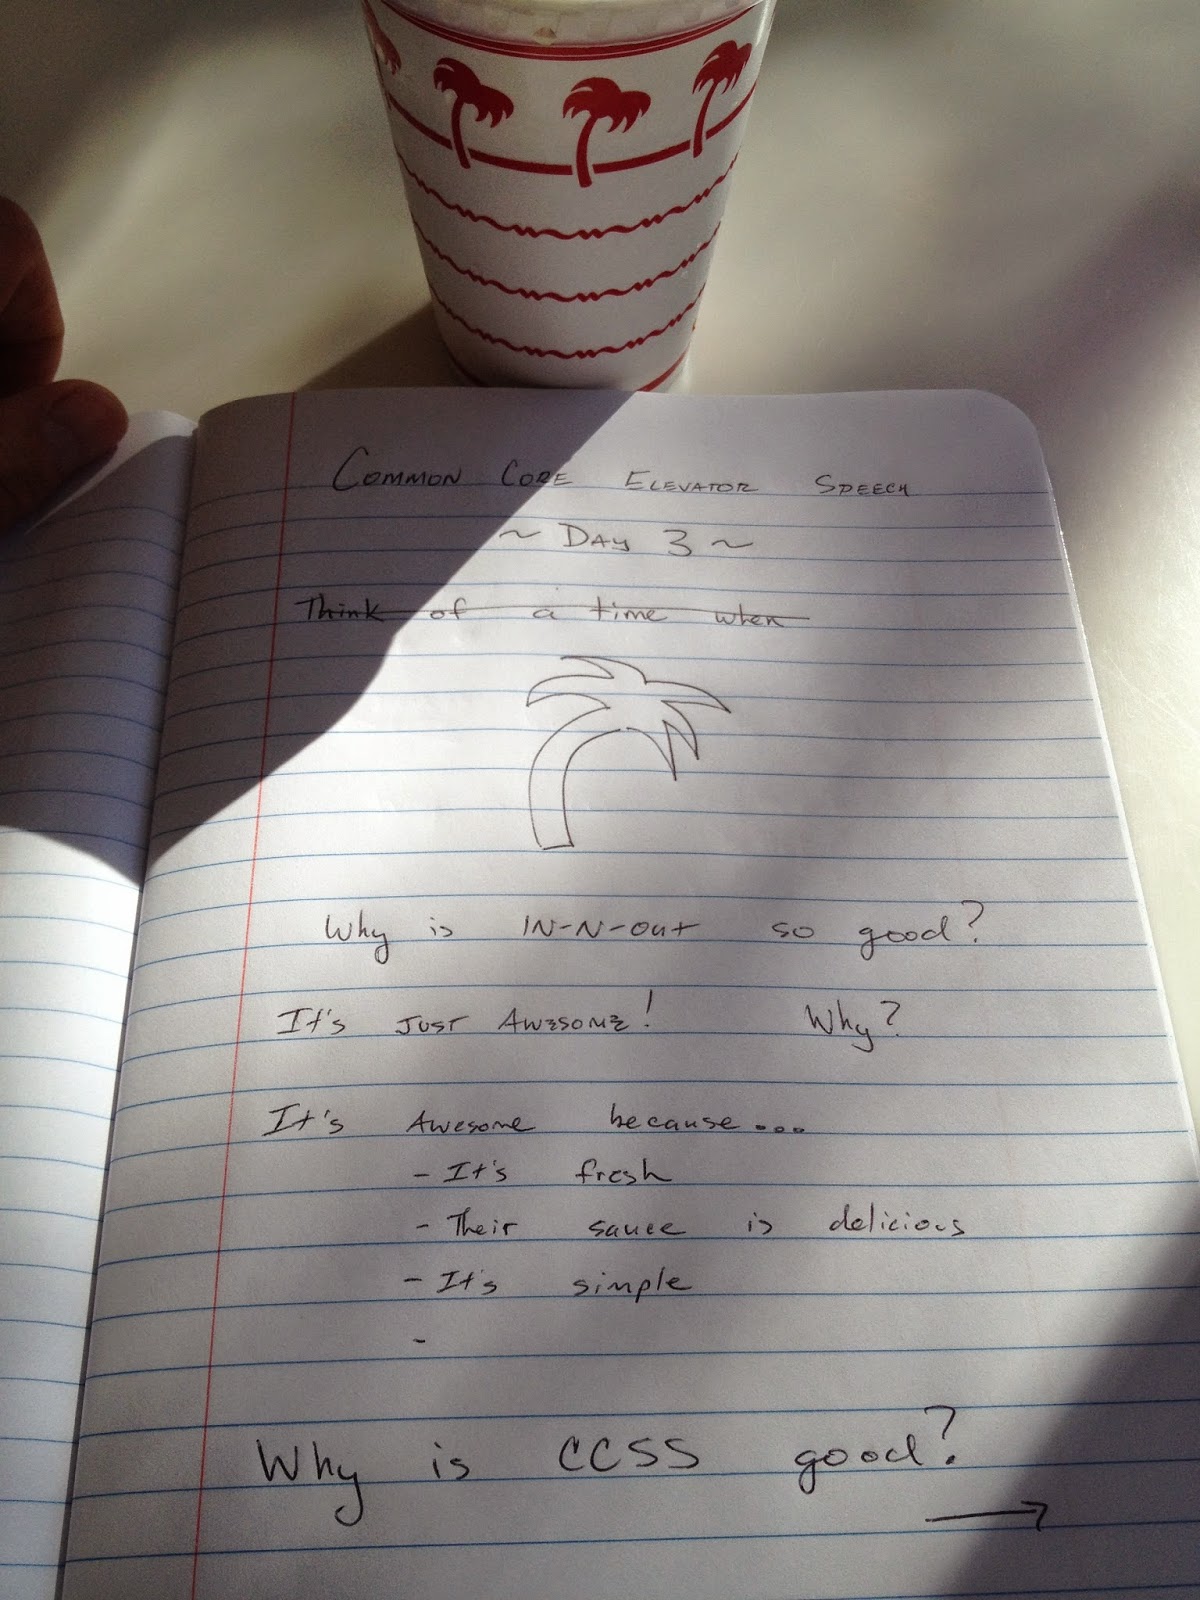 COMMON CORE ELEVATOR SPEECH
~ DAY 3 ~
Think of a time when
Why is IN-N-OUT so good?
It's JUST AWESOME! Why?
It's Awesome because...
- It's fresh
- Their sauce is delicious
- It's simple
-
Why is CCSS good?
→